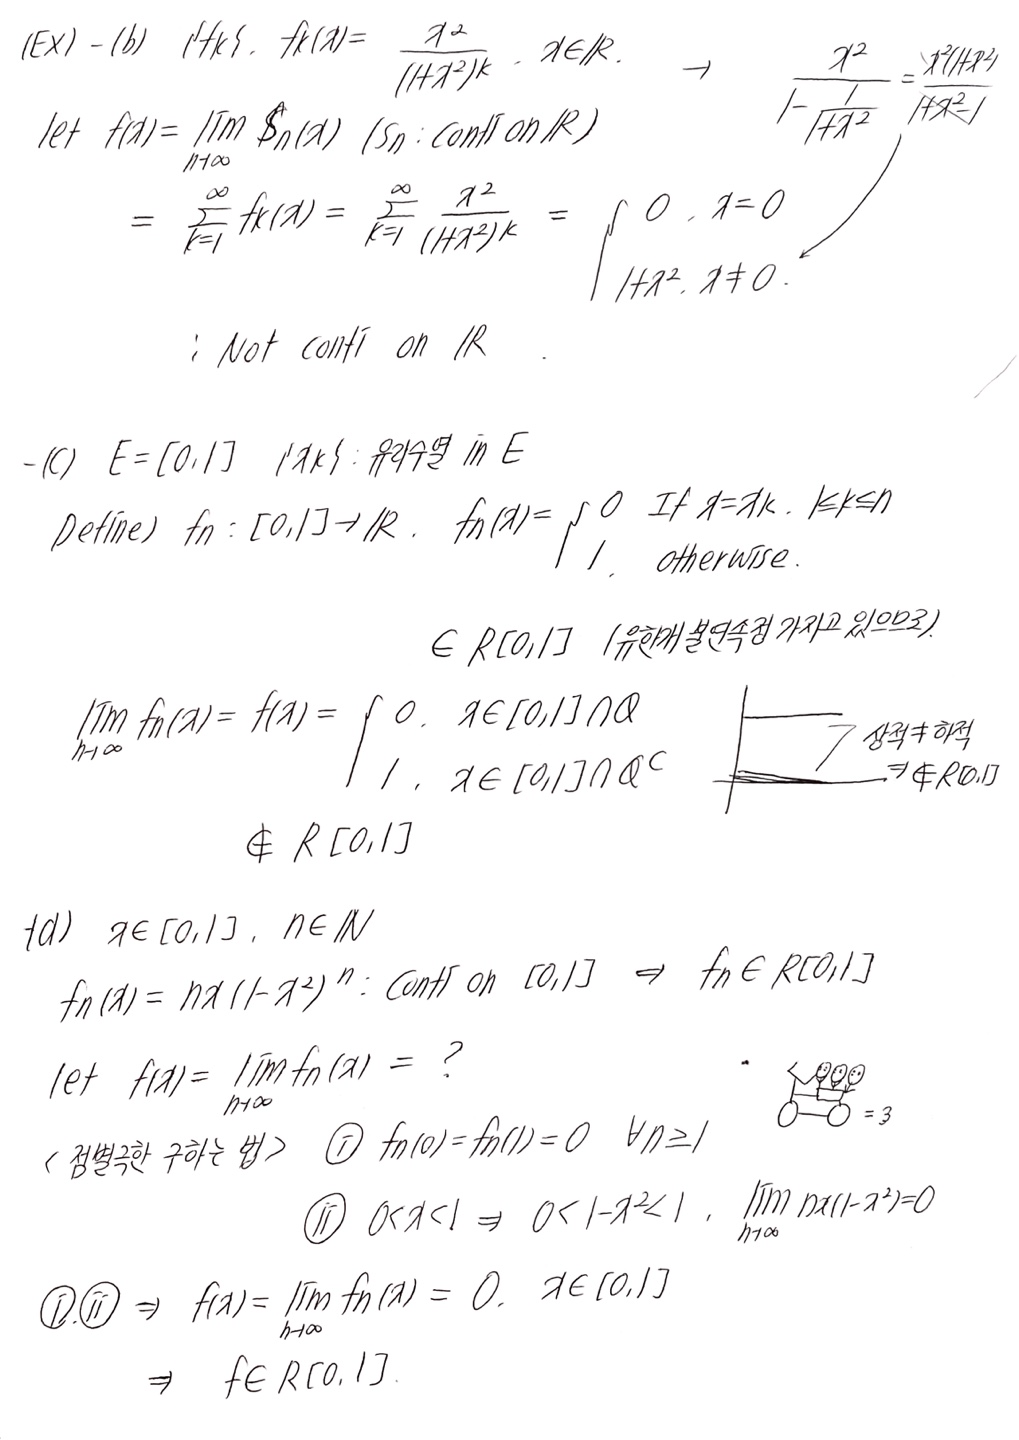 (EX) - (b) {fk}. fk(x) = x² / (1+x²)^k . x∈ℝ. → x² / (1 - 1/(1+x²)) = x²(1+x²) / (1+x²-1)
let f(x) = lim n→∞ Sn(x) (Sn : conti on ℝ)
= ∑ k=1 ∞ fk(x) = ∑ k=1 ∞ x² / (1+x²)^k = { 0 . x=0
1+x². x≠0.
: Not conti on ℝ .
-(c) E=[0,1] {xk} : 유리수열 in E
Define) fn : [0,1]→ℝ. fn(x) = { 0 If x=xk. 1≤k≤n
1. otherwise.
∈ R[0,1] (유한개 불연속점 가지고 있으므로).
lim n→∞ fn(x) = f(x) = { 0. x∈[0,1]∩ℚ
1. x∈[0,1]∩ℚᶜ
상적≠하적
⇒ ∉R[0,1]
∉ R[0,1]
-(d) x∈[0,1]. n∈ℕ
fn(x) = nx(1-x²)ⁿ : conti on [0,1] ⇒ fn∈R[0,1]
let f(x) = lim n→∞ fn(x) = ?
= 3
<점별극한 구하는 법> ⓘ fn(0)=fn(1)=0 ∀n≥1
ⓘⓘ 0<x<1 ⇒ 0<1-x²<1. lim n→∞ nx(1-x²)=0
ⓘ.ⓘⓘ ⇒ f(x) = lim n→∞ fn(x) = 0. x∈[0,1]
⇒ f∈R[0,1].